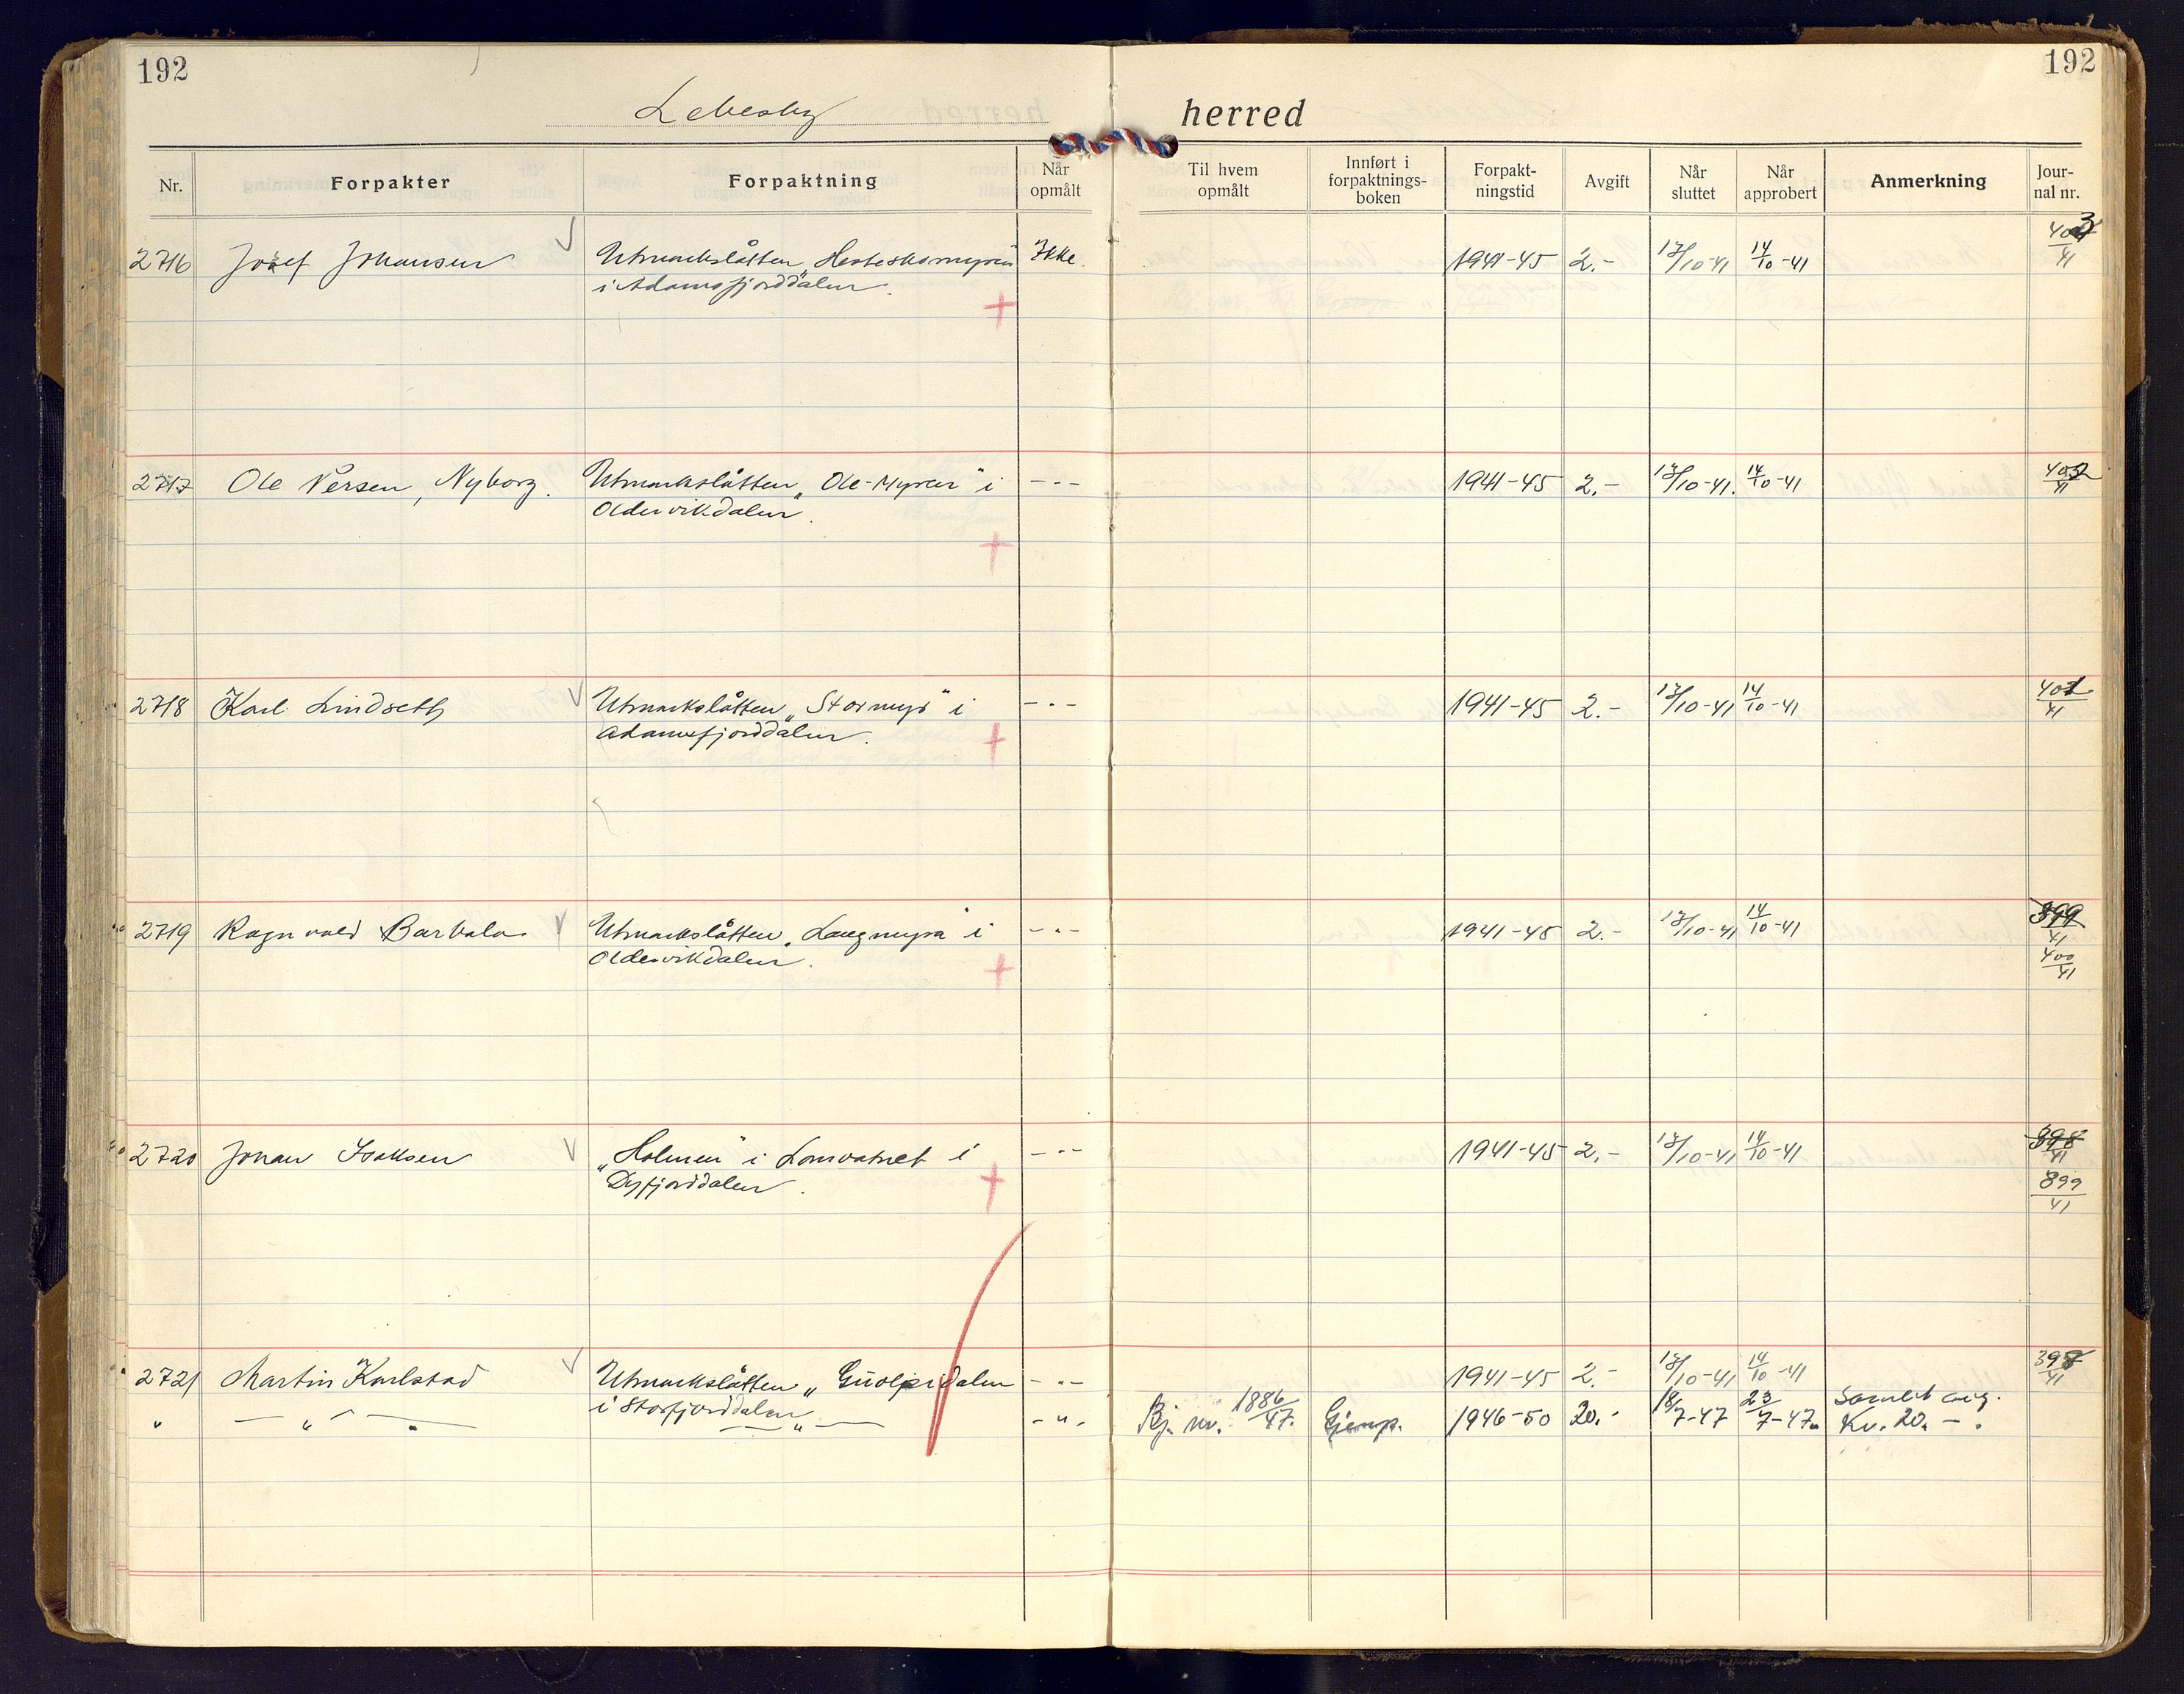 192
192
Lebesby herred
Nr.
Forpakter
Forpaktning
Når opmålt
Til hvem opmålt
Innført i forpaktnings-boken
Forpakt-ningstid
Avgift
Når sluttet
Når approbert
Anmerkning
Jour-nal nr.
2716 Josef Johansen Utmarkslåtten „Hesteskomyren" Ikke. 1941-45 2.- 13/10-41 14/10-41 403/41
i Adamsfjorddalen.
2717 Ole Persen, Nyborg. Utmarkslåtten „Ole-Myren" i -"- 1941-45 2.- 13/10-41. 14/10-41 402/41
Oldervikdalen.
2718 Karl Lindseth Utmarkslåtten „Stormyr" i -"- 1941-45 2.- 13/10-41 14/10-41 401/41
Adamsfjorddalen.
2719 Ragnvald Barbala Utmarkslåtten „Langmyra" i -"- 1941-45 2.- 13/10-41 14/10-41 399/41
Oldervikdalen. 400/41
2720 Johan Isaksen „Holmen" i Lomvatnet i -"- 1941-45 2.- 13/10-41 14/10-41 398/41
Dyfjorddalen. 399/41
2721 Martin Karlstad Utmarkslåtten „Guolpidalen -"- 1941-45 2.- 13/10-41 14/10-41 398/41
i Storfjorddalen
" — " — — " — -"- Bj. nr. 1886/47. 1946-50 20.- 18/7-47 23/7-47. Samlet avg.
Kr. 20.- .